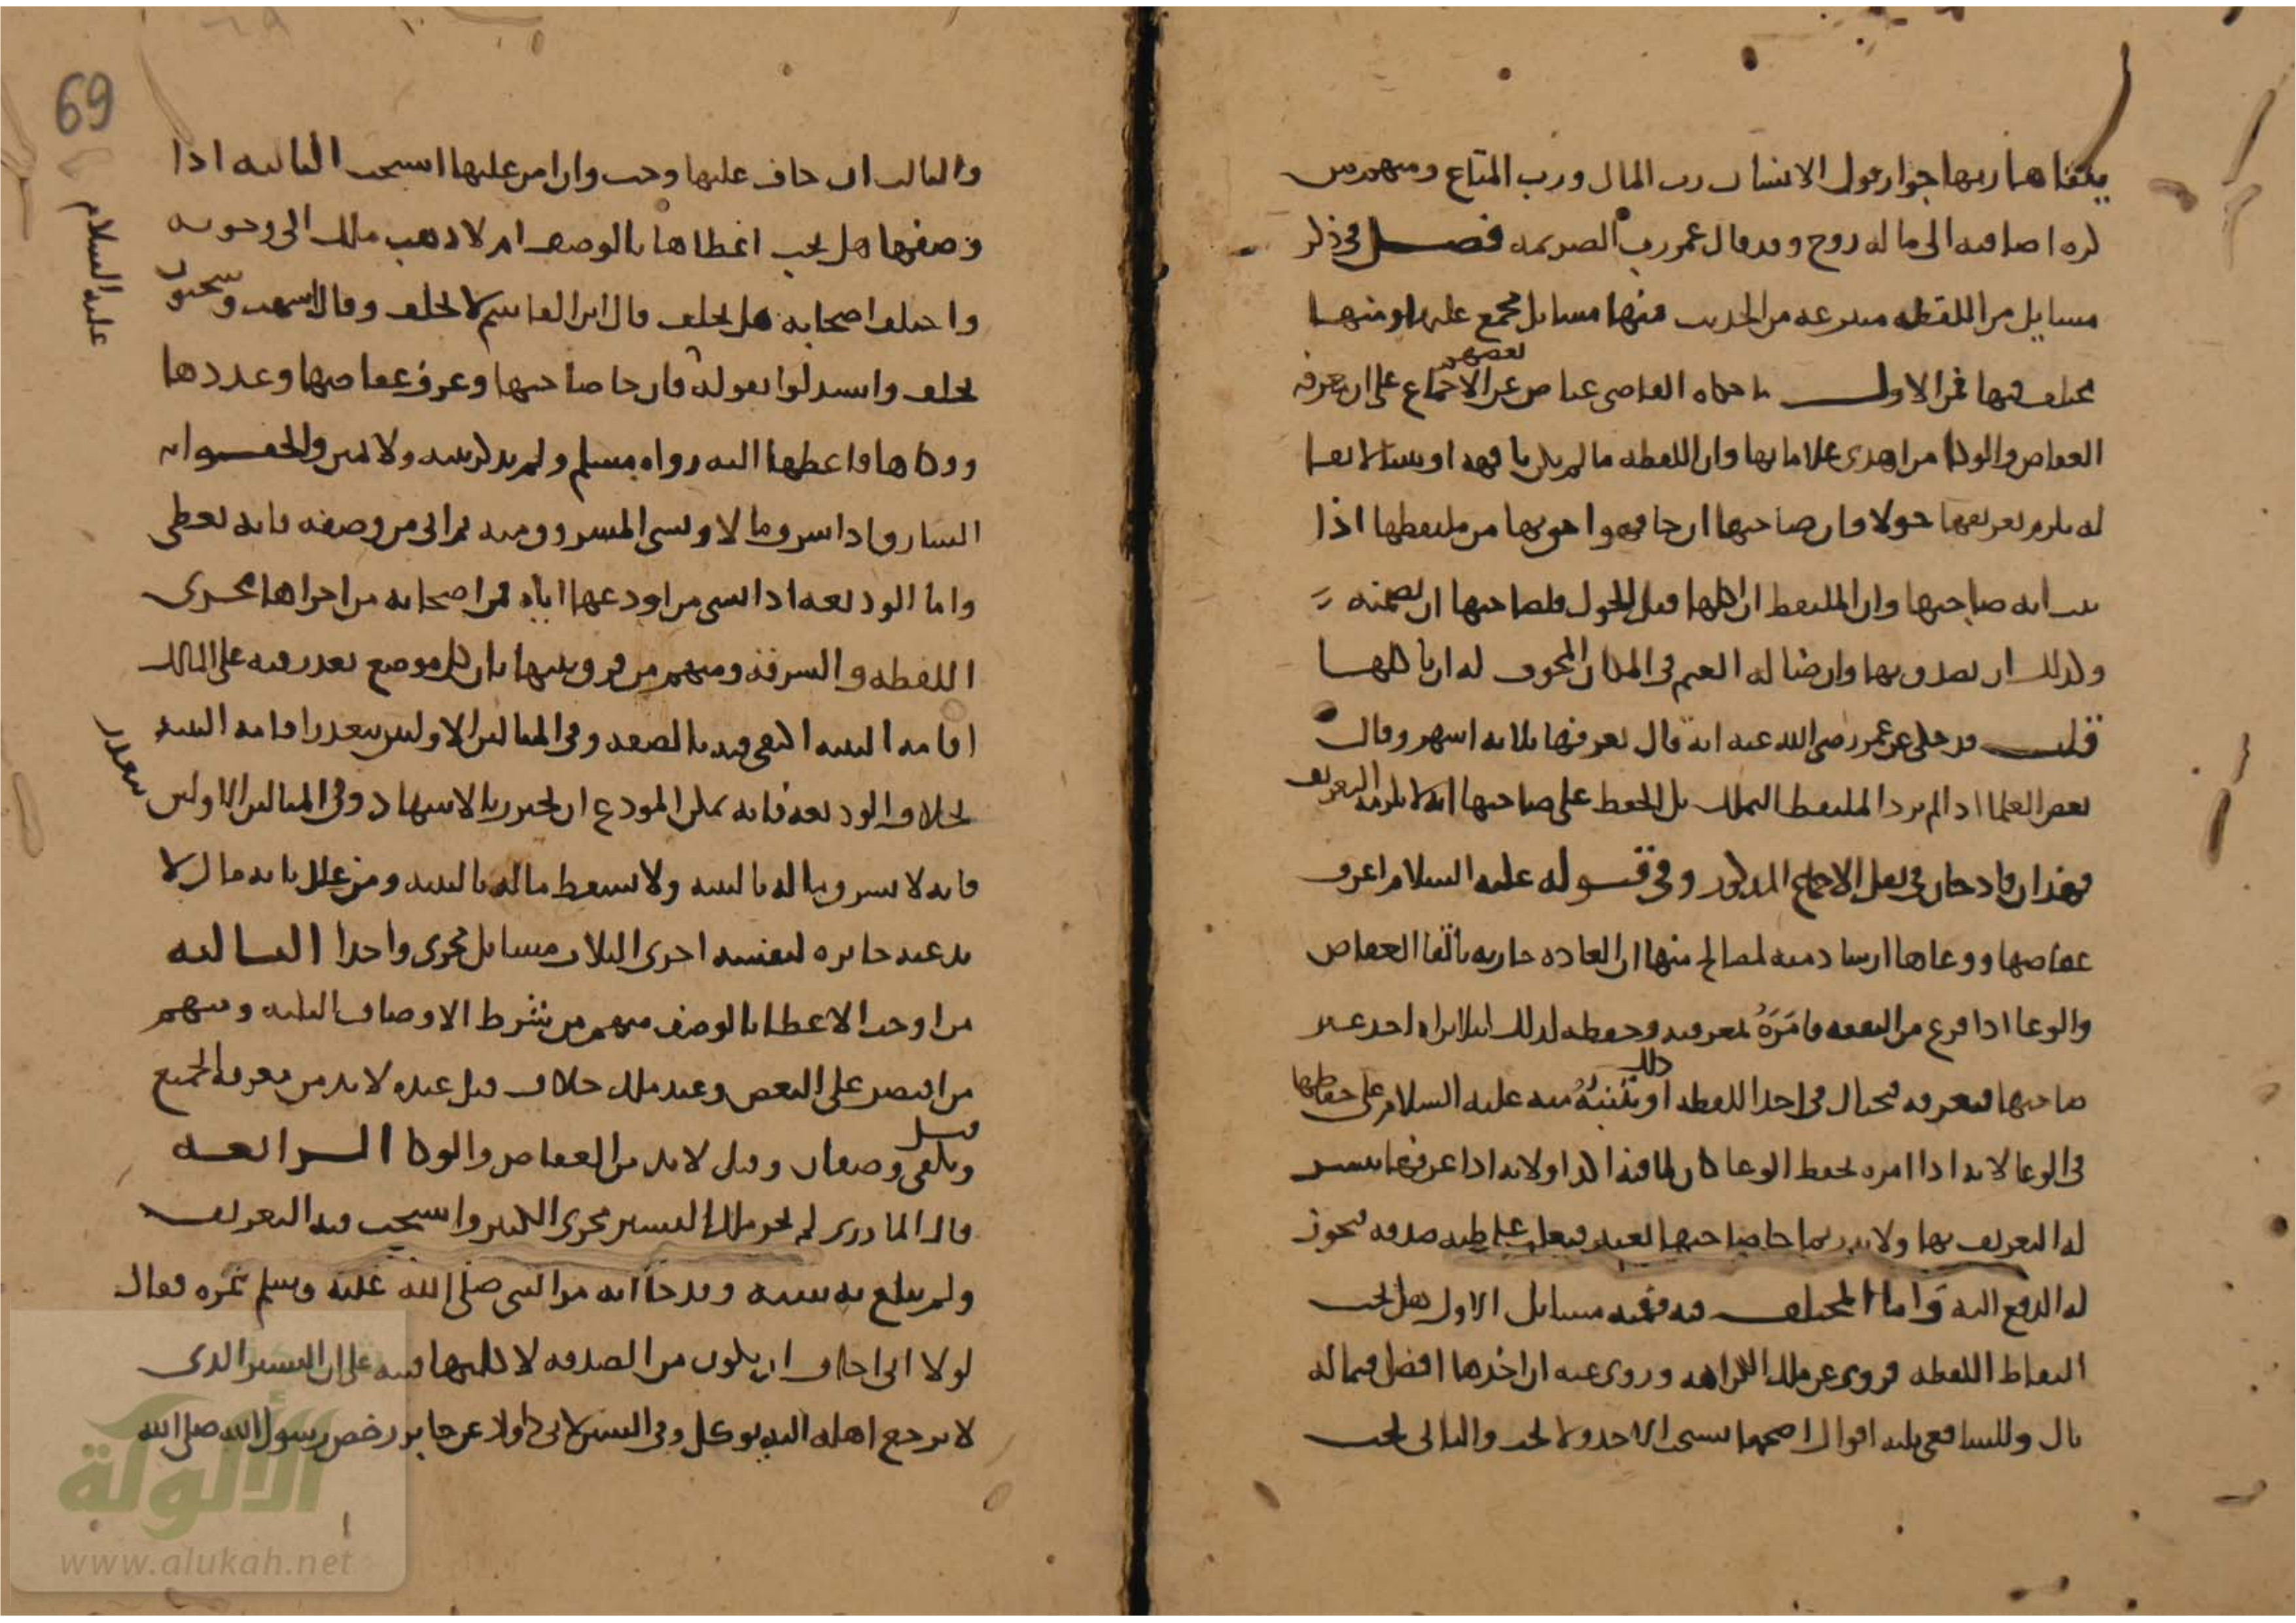 يلقاها ربها جواز قول الانسان رب المال ورب المتاع ومنهم من
كره اضافته الى ما له روح وقد قال عمر رب الصريمه فصل في ذكر
مسايل من اللقطه منتزعه من الحديث منها مسايل مجمع عليها ومنها
مختلف فيها فمن الاول ما حكاه القاضي عياض عن بعضهم الاجماع على ان معرفه
العفاص والوكا من اهدى علاماتها وان اللقطه ما لم يكن تافها او شيا لا بقا
له يلزم تعريفها حولا وان صاحبها ان جا فهو احق بها من ملتقطها اذا
ثبت انه صاحبها وان الملتقط ان اكلها قبل الحول فلصاحبها ان يضمنه
وكذلك ان تصدق بها وان ضاله الغنم في المكان المخوف له ان ياكلها
قلت قد حكى عن عمر رضي الله عنه انه قال يعرفها ثلاثه اشهر وقال
بعض العلما اذا لم يرد الملتقط التملك بل الحفظ على صاحبها انه لا يلزمه التعريف
فهذان قادحان في نقل الاجماع المذكور وفي قوله عليه السلام اعرف
عفاصها ووعاها ارشاد منه لمصالح منها ان العاده جاريه بالقا العفاص
والوعا اذا فرغ من النفقه فامره بمعرفته وحفظه لذلك ليلا يراه احد عند
صاحبها فيعرفه فيحتال في اخذ اللقطه او ذلك تنبيه منه عليه السلام على حفاظها
في الوعا لانه اذا امره بحفظ الوعا كان لما فيه اكد اولانه اذا عرفها تيسر
له التعريف بها ولانه ربما جا صاحبها بغته فيغلب على ظنه صدقه فيجوز
له الدفع اليه واما المختلف فيه ففيه مسايل الاول هل يجب
التقاط اللقطه فروى عن ملك الكراهه وروى عنه ان اخذها افضل فيما له
بال وللشافعي ثلثه اقوال اصحها يستحب الاخذ ولا يجب والثاني يجب
69
والثالث ان خاف عليها وجب وان امن عليها استحب الثانيه اذا
وصفها هل يجب اعطاها بالوصف ام لا ذهب ملك الى وجوبه
واختلف اصحابه هل يحلف قال ابن القاسم لا يحلف وقال اشهب وسحنون
يحلف واستدلوا بقوله فان جا صاحبها وعرف عفاصها وعددها
ووكاها فاعطها اليه رواه مسلم ولم يذكر بينه ولا يمين والحقوا به
السارق اذا سرق مالا ونسي المسروق منه ثم اتى من وصفه فانه يعطى
واما الوديعه اذا نسي من اودعها اياه فمن اصحابه من اجراها مجرى
اللقطه والسرقه ومنهم من فرق بينها بان كل موضع يعذر فيه على المالك
اقامه البينه اكتفي فيه بالصفه وفي المثالين الاولين يتعذر اقامه البينه
يتعذر
بخلاف الوديعه فانه يمكن المودع ان يحترز بالاشهاد وفي المثالين الاولين
فانه لا يسرق ماله بالبينه ولا يسقط ماله بالبينه ومن علل بانه مال لا
يد عنه حايزه لنفسه اجرى الثلاث مسايل مجرى واحدا الثالثه
من اوجب الاعطا بالوصف منهم من يشرط الاوصاف الثلثه ومنهم
من اقتصر على البعض وعند ملك خلاف قيل عنده لا بد من معرفه الجميع
وقيل يكفي وصفان وقيل لا بد من العفاص والوكا الرابعه
قال المازري لم يجر ملك اليسير مجرى الكثير واستحب فيه التعريف
ولم يبلغ به سنه وقد جا انه مر النبي صلى الله عليه وسلم بتمره فقال
عليه السلام
لولا اني اخاف ان يكون من الصدقه لاكلتها فنبه على ان اليسير الذي
لا يرجع اهله اليه يوكل وفي السنن لابي داود عن جابر رخص رسول الله صلى الله
الألولة
www.alukah.net